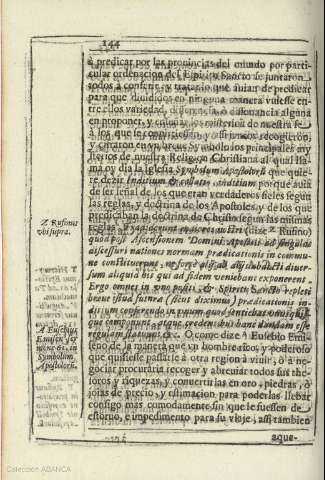 144
à predicar por las prouincias del mundo por parti-
cular ordenacion del Espiritu Sancto se juntaron
todos à conferir, y tratar lo que auian de predicar
para que diuididos en ninguna manera vuiesse en-
tre ellos variedad, differencia, ò dissonancia alguna
en proponer, y enseñar los misterios de nuestra fe
à los que se conuirtiessen, y assi juntos recogieron,
y cifraron en vn breue Symbolo los principales my
sterios de nuestra Religion Christiana al qual lla-
ma oy dia la Iglesia Symbolum Apostolorũ que quie-
re dezir Inditium & collatio, inditium por que auia
de ser señal de los que eran verdaderos fieles segun
las reglas, y doctrina de los Apostoles, y de los que
predicaban la doctrina de Christo segun las mismas
reglas. Tradiderunt maiores nostri (dize Z Rufino)
quod post Ascensionem Domini Apostoli ad singulas
discessuri nationes normam prædicationis in commu-
ne constituerunt, ne forte alij ab alijs abducti diuer-
sum aliquid bis qui ad fidem veniebant exponerent.
Ergo omnes in vno positi, & Spiritu Sancto repleti
breue istud futuræ (sicut diximus) prædicationis in-
ditium conferendo in vnum quod sentiebat vnusquisq;
componunt, atque credentibus hanc dandam esse
regulam statuunt &c. O como dize A Eusebio Emi-
seno de la manera que vn hombre rico, y poderoso
que quisiesse passarse à otra region à viuir, ò à ne-
gociar procuraria recoger y abreuiar todos sus the-
soros y riquezas, y conuertirlas en oro, piedras, ò
joias de precio, y estimacion para poderlas lleuar
consigo mas comodamente sin que le fuessen de
estoruo, è impedimento para su viaje, assi tambien
aque-
Z Rufinus
vbi supra.
A Eusebius
Emissen'
in
Symbolum
Apostolorũ.
Colección ABANCA